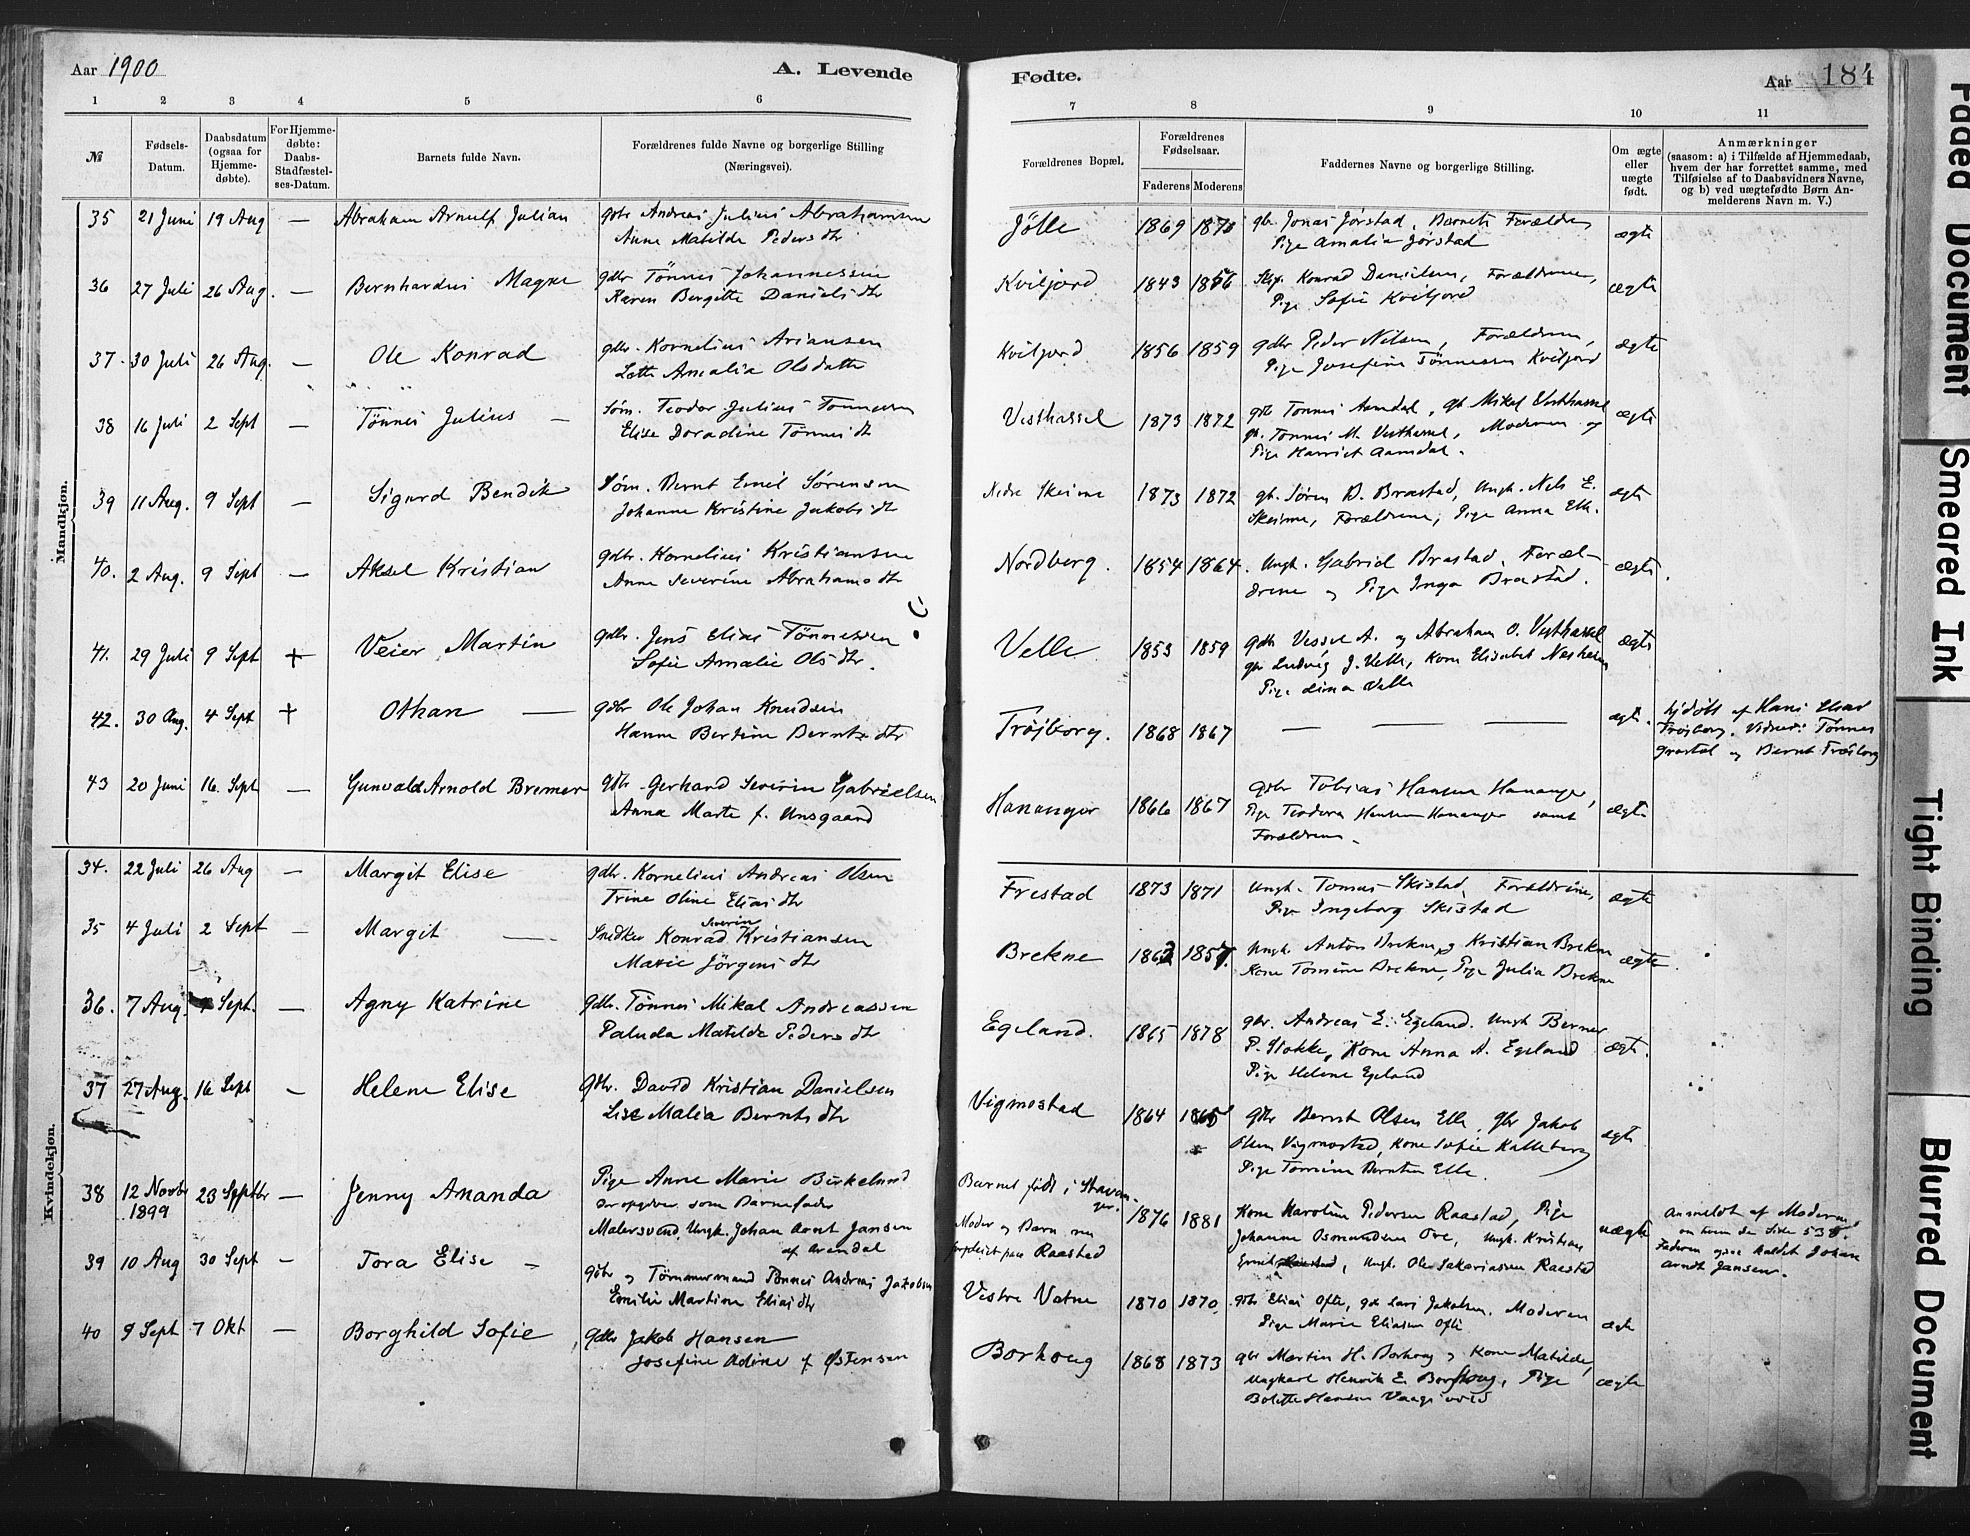 Aar 1900
A. Levende
Fødte.
Aar 184
1 2 3 4 5 6 7 8 9 10 11
№
Fødsels-
Datum.
Daabsdatum
(ogsaa for
Hjemme-
døbte).
For Hjemme-
døbte:
Daabs-
Stadfæstel-
ses-Datum.
Barnets fulde Navn.
Forældrenes fulde Navne og borgerlige Stilling
(Næringsvei).
Forældrenes Bopæl.
Forældrenes
Fødselsaar.
Faderens Moderens
Faddernes Navne og borgerlige Stilling.
Om ægte
eller
uægte
født.
Anmærkninger
(saasom: a) i Tilfælde af Hjemmedaab,
hvem der har forrettet samme, med
Tilføielse af to Daabsvidners Navne,
og b) ved uægtefødte Børn An-
melderens Navn m. V.)
Mandkjøn.
35 21 Juni 19 Aug — Abraham Arnulf Julian gdbr Andreas Julius Abrahamsen
Anne Matilde Pedersdtr
Jølle 1869 1870 gbr Jonas Jørstad, Barnets Forældre
Pige Amalia Jørstad
ægte
36 27 Juli 26 Aug. — Bernhardus Magne gdbr Tönnes Johannessen
Karen Bergitte Danielsdtr
Kviljord 1843 1856 Konrad Danielsen, Forældrene,
Pige Sofie Kviljord
ægte
37 30 Juli 26 Aug. — Ole Konrad gdbr. Kornelius Ariansen
Lotte Amalia Olsdatter
Kviljord 1856 1859 gdbr Peder Nilsen, Forældrene,
Pige Josefine Tönnessen Kviljord
ægte
38 16 Juli 2 Sept — Tönnes Julius — Söm. Teodor Julius Tonnessen
Elise Doradine Tönnesdtr
Vesthassel 1873 1872 gdb Tonnes Aamdal, gb Mikal Vesthassel
gb. Tönnes M. Vesthassel, Moderen og
Pige Harriet Aamdal.
ægte
39 11 Aug. 9 Sept — Sigurd Bendik Söm. Bernt Emil Sörensen
Johanne Kristine Jakobsdtr
Nedre Skeime 1873 1872 gb. Sören B. Brastad, Ungk. Nels E.
Skeime, Forældrene, Pige Anna Elle.
ægte
40. 2 Aug. 9 Sept — Aksel Kristian gdbr. Kornelius Kristiansen
Anne Severine Abrahamsdtr
Nordberg. 1854 1864. Ungk. Gabriel Brastad, Foræl-
drene og Pige Inga Brastad.
ægte
41. 29 Juli 9 Sept + Veier Martin gdbr. Jens Elias Tönnessen
Sofie Amalie Olsdtr.
Velle 1853 1859 gdbr Vessel A. og Abraham O. Vesthassel
gbr Ludvig J. Velle, Kone Elisabet
Pige Velle
ægte
42. 30 Aug. 4 Sept + Othan — gdbr Ole Johan Knudsen
Hanne Bertine Berntsdtr
Tröjborg. 1868 1867 — — —
ægte.
hjdöbt af Hans Elias
Tröjborg. Vidner: Tönnes
og Bernt Tröjborg
43 20 Juni 16. Sept — Gunvald Arnold Bremer gdbr Gerhard Severin Gabrielsen
Anna Marte f. Unsgaard
Hananger 1866 1867 gdbr Tobias Hansen Hananger,
Pige Teodora Hansen Hananger samt
Forældrene.
ægte
Kvindekjøn.
34. 22 Juli 26 Aug — Margit Elise gdbr. Kornelius Andreas Olsen
Trine Oline Eliasdtr
Frestad 1873 1871 Ungk. Tomas Skistad, Forældrene,
Pige Ingeborg Skistad
ægte
35 4 Juli 2 Sept — Margit — Snedker Konrad Severin Kristiansen
Marie Jörgensdtr
Brekne 1862 1857. Ungk Anton Brekne, og Kristian Brekne
Kone Tomine Brekne, Pige Julia Brekne
ægte.
36. 7 Aug. Sept. — Agny Katrine gdbr. Tönnes Mikal Andreassen
Paluda Matilde Pedersdtr
Egeland. 1865 1878 gbr. Andreas E. Egeland. Ungk Berner
P. Stokke, Kone Anna A. Egeland
Pige Helene Egeland
ægte.
37 27 Aug. 16 Sept — Helene Elise gdbr. David Kristian Danielsen
Lise Malia Berntsdtr
Vigmostad 1864 1865 gdbr Bernt Olsen Elle, gbr Jakob
Olsen Vigmostad, Kone Sofie Kalleberg
Pige Tomine Berntsen Elle.
ægte
38 12 Novbr
1899
23 Septbr — Jenny Amanda Pige Anne Marie Birkeland
som Barnefader
Malersvend, Ungk. Johan Arnt Jansen
af Arendal
Barnet födt i Stavan-
ger.
Moder og Barn nu
paa Raastad
1876 1881 Kone Karoline Pedersen Raastad, Pige
Johanne Osmundsen Ore, Ungk. Kristian
Ungk. Ole Sakariassen Raastad
uægte
Anmeldt af Moderen
Faderen kaldet Johan
Arndt Jansen.
39 10 Aug 30 Sept — Tora Elise — gdbr og Tönnes Andreas Jakobsen
Emilie Martine Eliasdtr
Vestre Vatne 1870 1870. gdbr Elias Ofte, gdb Lars Jakobsen. Moderen
Pige Marie Eliasen Ofte
ægte
40 9 Sept 7 Okt — Borghild Sofie gdbr Jakob Hansen
Josefine Adine f. Östensen
Borhaug 1868 1873 gbr Martin H. Borhaug og Kone Matilde,
Ungkarl Henrik E. Borhaug, Pige
Bolette Hansen Vaagsvold
ægte
Faded Document
Smeared Ink
Tight Binding
Blurred Document